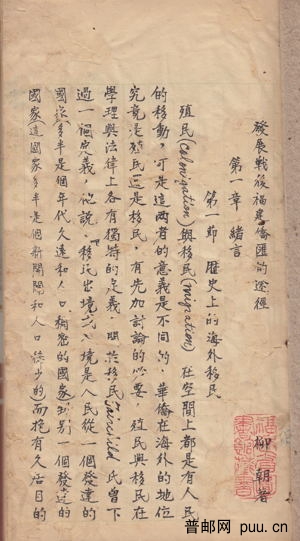 發展戰後福建僑匯的途徑
柳朝著
第一章 緒言
第一節 歷史上的海外移民
殖民(Colonization)與移民(migration)在空間上都是有人民
的移動,可是這兩者的意義是不同的,華僑在海外的地位
究竟是殖民還是移民,有先加討論的必要,殖民與移民在
學理與法律上各有獨特的定義,關於移民Fairchild氏曾下
過一個定義,他說:「移民出境或入境是人民從一個發達的
國家多半是個年代久遠和人口稠密的國家到別一個發達的
國家這國家多半是個新開闢和人口稀少的而抱有久居目的
普邮网 puu.cn